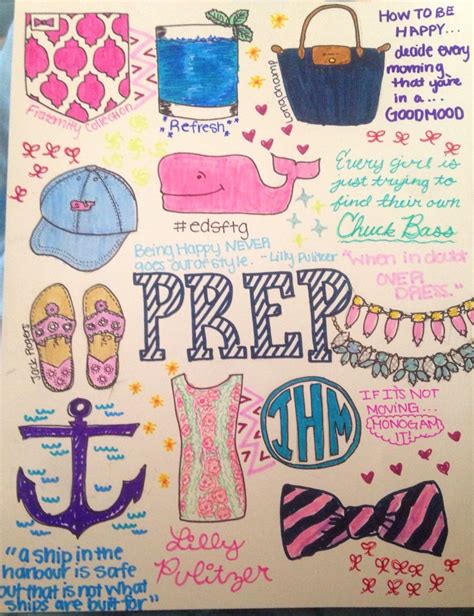 HOW TO BE
HAPPY...
decide every
morning
that you're
in a...
GOOD MOOD
Fraternity Collection
"Refresh"
Longchamp
Every girl is
just trying to
find their own
Chuck Bass
#edsftg
Being Happy NEVER
goes out of style. - Lilly Pulitzer
"When in doubt
OVER
DRESS."
PREP
Jack Rogers
IHM
IF IT'S NOT
MOVING...
MONOGAM
IT
Lilly
Pulitzer
"a ship in the
harbour is safe
but that is not what
ships are built for"